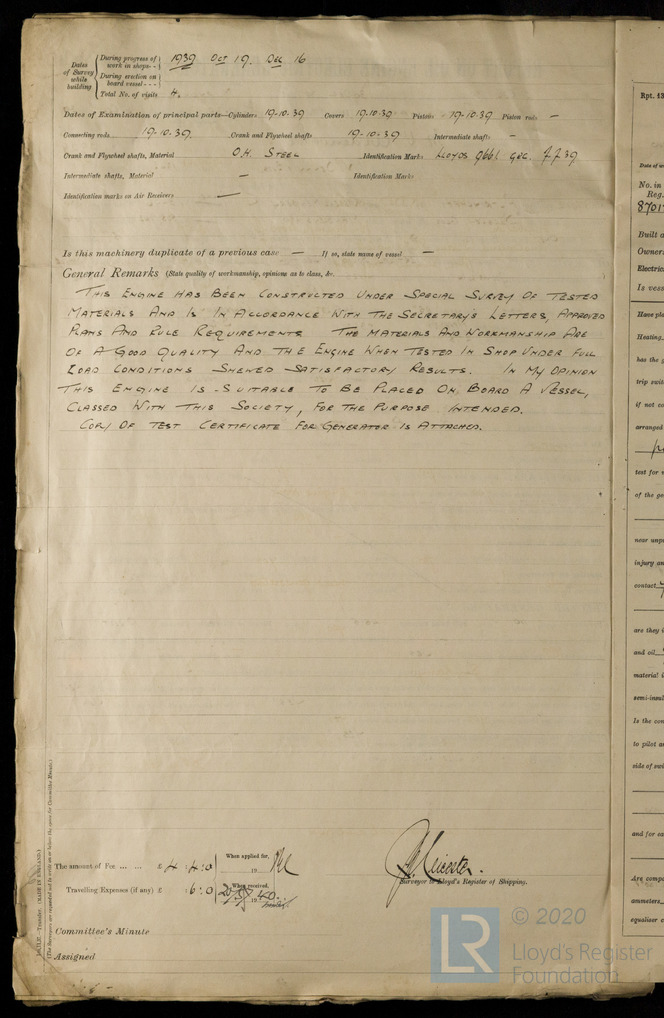 Dates of Survey while building
During progress of work in shops - - 1939 Oct 19. Dec 16
During erection on board vessel - - -
Total No. of visits 4.
Dates of Examination of principal parts—Cylinders 19-10-39 Covers 19-10-39 Pistons 19-10-39 Piston rods —
Connecting rods 19-10-39. Crank and Flywheel shafts 19-10-39 Intermediate shafts —
Crank and Flywheel shafts, Material O.H. STEEL Identification Marks LLOYDS 9661 GEC. 7.7.39
Intermediate shafts, Material — Identification Marks
Identification marks on Air Receivers —
Is this machinery duplicate of a previous case — If so, state name of vessel —
General Remarks (State quality of workmanship, opinions as to class, &c.
THIS ENGINE HAS BEEN CONSTRUCTED UNDER SPECIAL SURVEY OF TESTED
MATERIALS AND IS IN ACCORDANCE WITH THE SECRETARY'S LETTERS, APPROVED
PLANS AND RULE REQUIREMENTS. THE MATERIALS AND WORKMANSHIP ARE
OF A GOOD QUALITY AND THE ENGINE WHEN TESTED IN SHOP UNDER FULL
LOAD CONDITIONS SHEWED SATISFACTORY RESULTS. IN MY OPINION
THIS ENGINE IS SUITABLE TO BE PLACED ON BOARD A VESSEL,
CLASSED WITH THIS SOCIETY, FOR THE PURPOSE INTENDED.
COPY OF TEST CERTIFICATE FOR GENERATOR IS ATTACHED.
The amount of Fee ... ... £ 4 : 4 : 0 When applied for, 19
Travelling Expenses (if any) £ : 6 : 0 When received, 19 40
Leicester.
Surveyor to Lloyd's Register of Shipping.
Committee's Minute
Assigned
(MADE IN ENGLAND.)
(The Surveyors are requested not to write on or below the space for Committee Minute.)
Rpt. 13
No. in
Reg.
8701
Built a
Owner
Electric
Is vess
Have pla
Heating
has the g
trip swit
if not co
arranged
test for
of the ge
near unp
injury an
contact
are they
and oil
material
semi-insul
Is the con
to pilot a
side of swi
and for ea
Are compa
ammeters
equaliser c
© 2020
LR
Lloyd's Register
Foundation